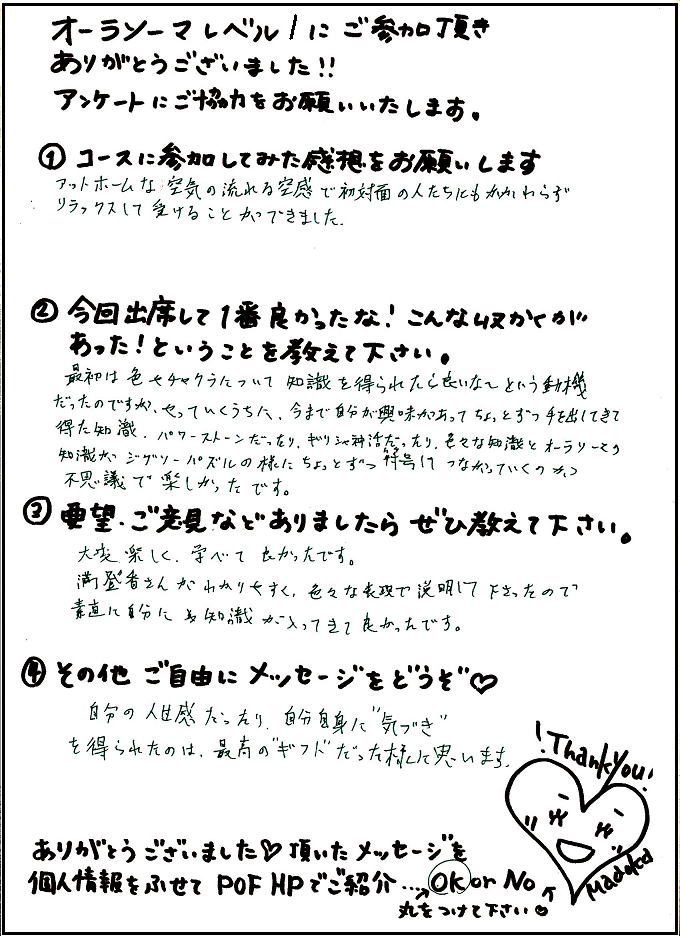 オーラソーマ レベル1に ご参加頂き
ありがとうございました!!
アンケートにご協力をお願いいたします。
① コースに参加してみた感想をお願いします
アットホームな空気の流れる空感で初対面の人たちにもかかわらず
リラックスして受けることができました。
② 今回出席して1番良かったな!こんな収かくが
あった!ということを教えて下さい。
最初は色やチャクラについて知識を得られたら良いな〜という動機
だったのですが、やっていくうちに、今まで自分が興味があってちょっとずつ手を出してきて
得た知識、パワーストーンだったり、ギリシャ神話だったり、色々な知識とオーラソーマの
知識が ジグソーパズルの様にちょっとずつ 符号して つながっていくのが
不思議で楽しかったです。
③ 要望、ご意見などありましたら ぜひ教えて下さい。
大変楽しく、学べて 良かったです。
満登香さんが わかりやすく、色々な表現で説明して下さったので
素直に自分に 知識が入ってきて良かったです。
④ その他 ご自由に メッセージをどうぞ♡
自分の人生感だったり、自分自身に"気づき"
を得られたのは、最高の"ギフト"だった様に思います。
!Thank you!
Madoka
ありがとうございました♡ 頂いた メッセージを
個人情報をふせて POF HPでご紹介 .... OK or No
丸をつけて下さい♡